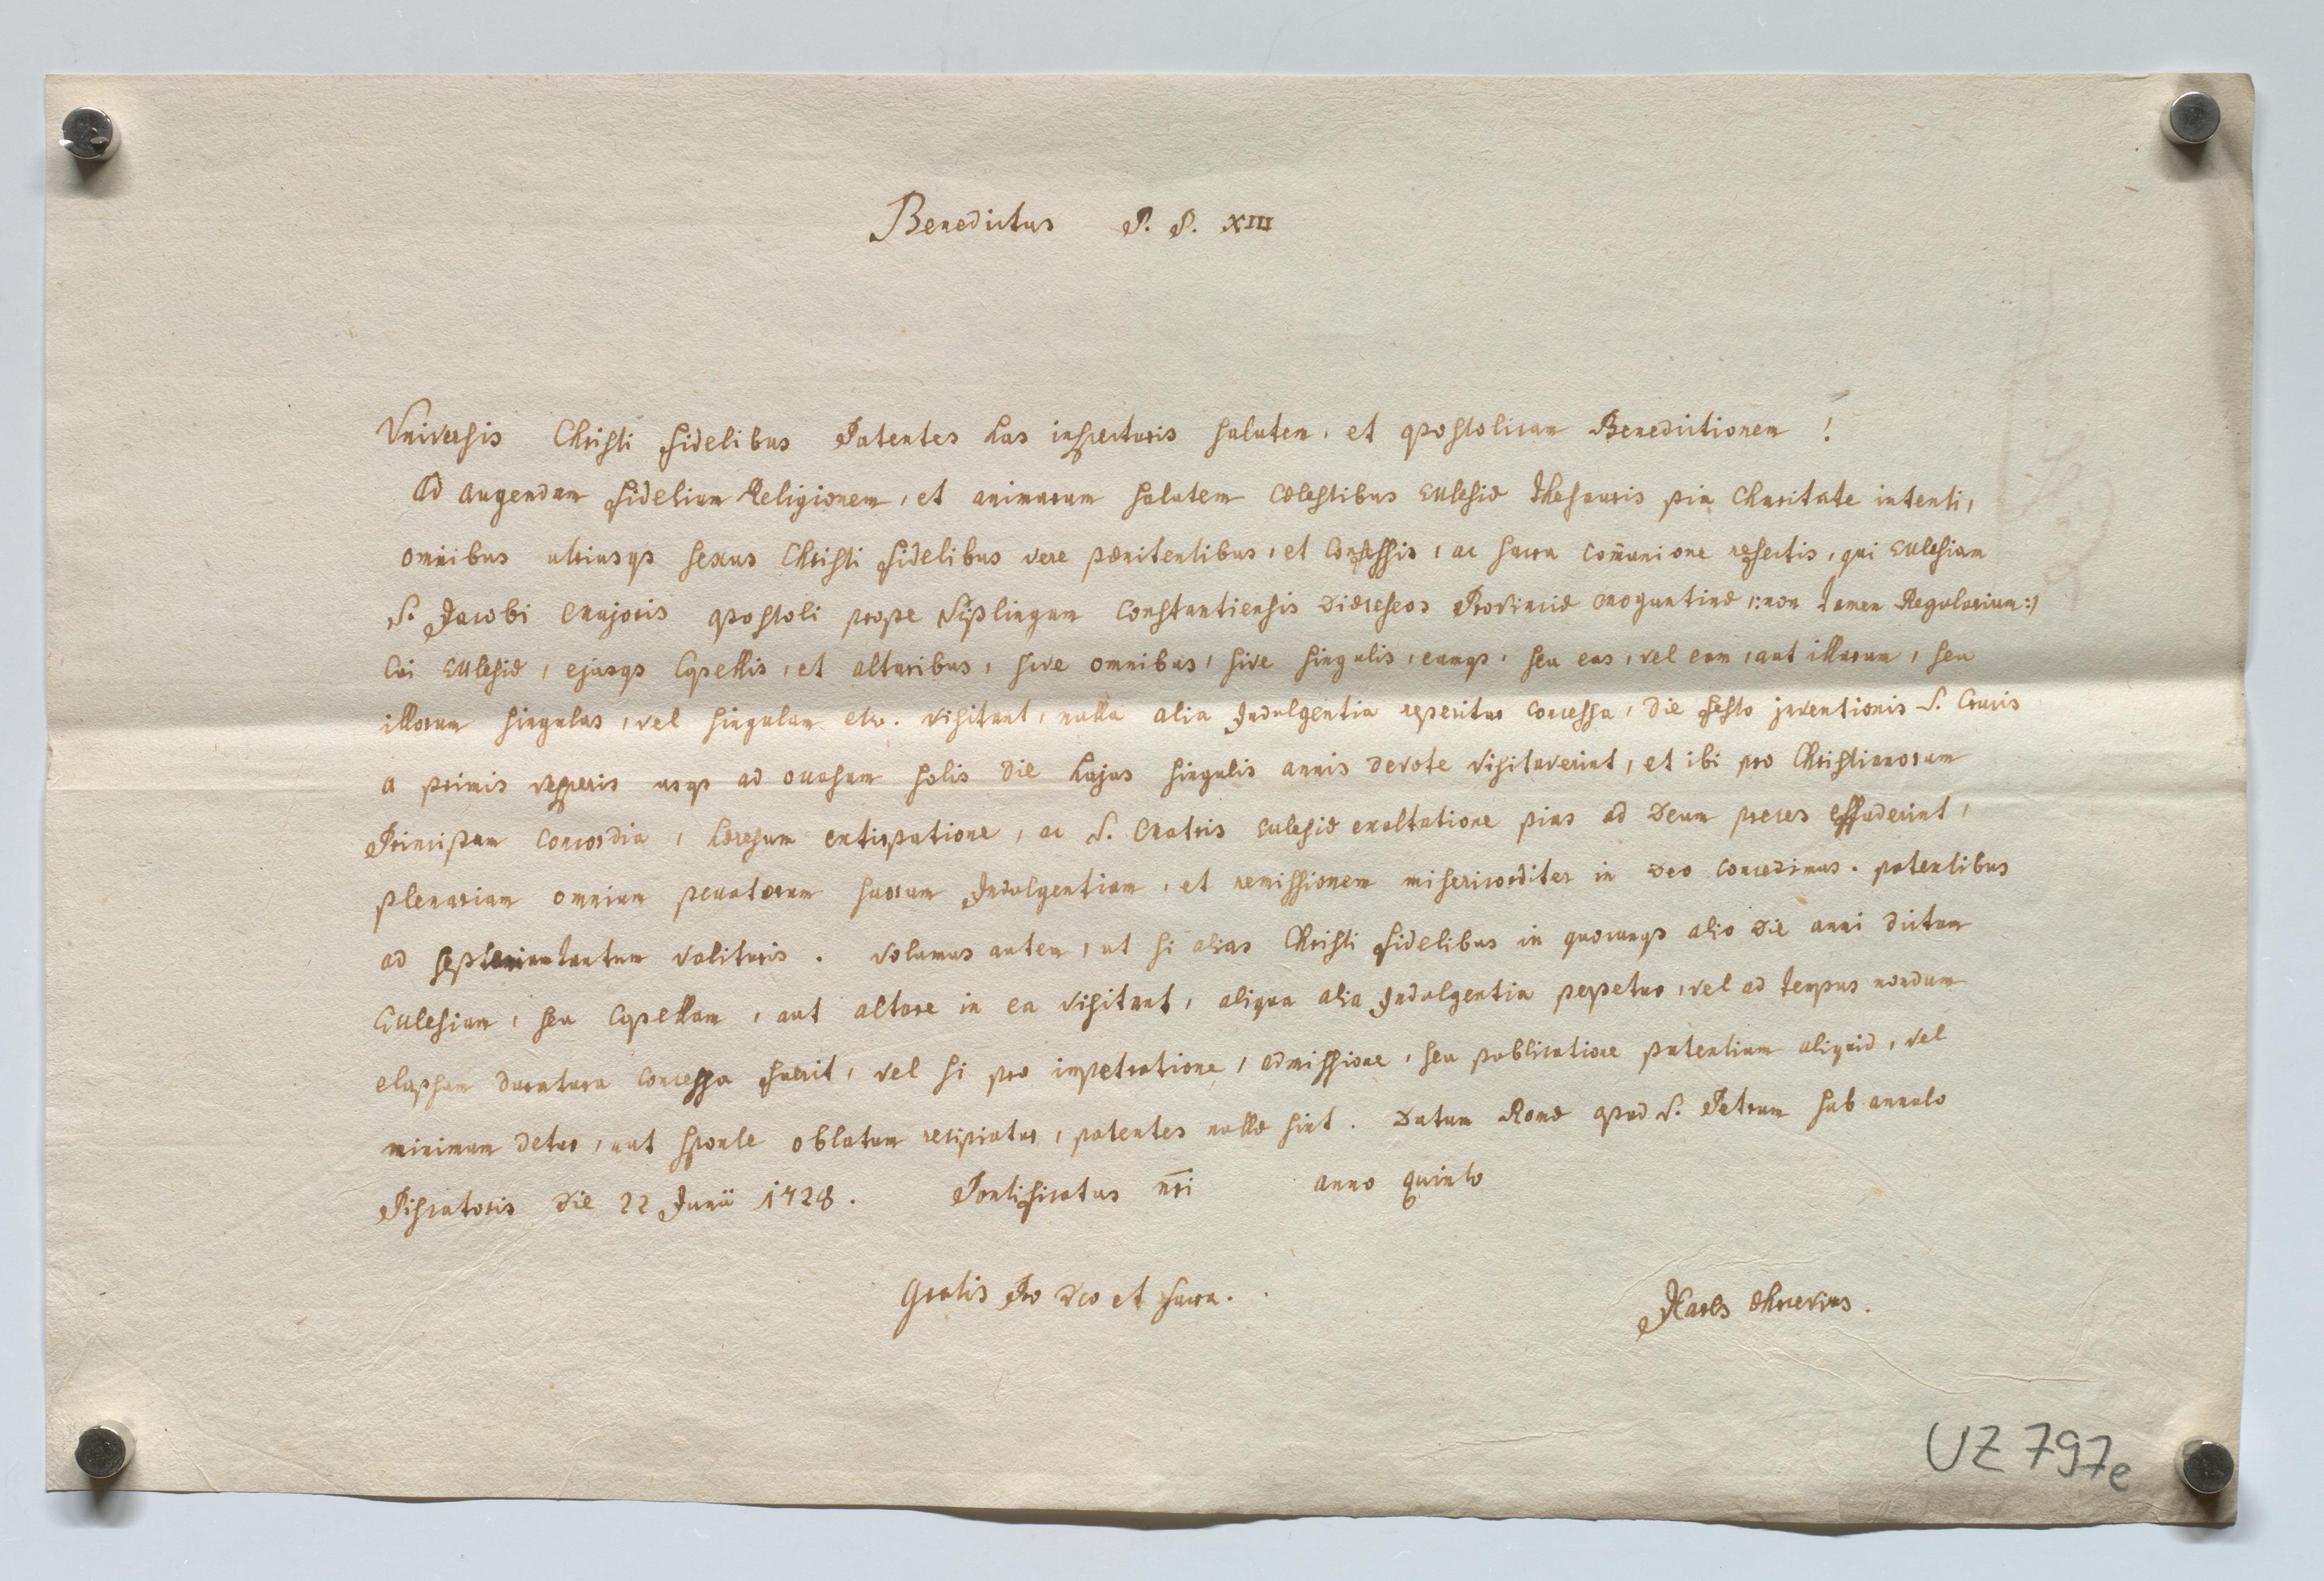 Benedictus P. P. XIII
Universis Christi fidelibus Patentes has inspecturis salutem, et apostolicam Benedictionem !
Ad augendam fidelium Religionem, et animarum salutem cœlestibus Ecclesiæ thesauris pia Charitate intenti,
omnibus utriusqs sexus Christi fidelibus vere pœnitentibus, et Confessis, ac sacra com̄unione refectis, qui Ecclesiam
S. Jacobi Majoris apostoli prope Constantiensis Diœceseos Provinciæ Moguntinæ /:non tamen Regularium:/
Cui Ecclesiæ, ejusqs Capellis, et altaribus, sive omnibus, sive singulis, eamqs, seu eas, vel eam, aut illarum, seu
illorum singulas, vel singulam etc. visitant, nulla alia Indulgentia reperitur concessa, die festo inventionis S. Crucis
a primis vesperis usqs ad occasum solis die hujus singulis annis devote visitaverint, et ibi pro Christianorum
Principum Concordia, hæresum extirpatione, ac S. Matris Ecclesiæ exaltatione pias ad Deum preces effuderint,
plenariam omnium peccatorum suorum Indulgentiam, et remissionem misericorditer in Deo concedimus. patentibus
ad tantum valituris. Volumus autem, ut si alias Christi fidelibus in quocunqs alio die anni dictam
Ecclesiam, seu Capellam, aut altare in ea visitant, aliqua alia Indulgentia perpetuo, vel ad tempus nondum
elapsum duratura concessa fuerit, vel si pro impetratione, admissione, seu publicatione patentium aliquid, vel
minimum detur, aut sponte oblatum recipiatur, patentes nullæ sint. Datum Romæ apud S. Petrum sub annulo
Piscatoris die 22 Junii 1728. Pontificatus nr̄i anno quinto
Gratis Pro Deo et sacra.
UZ 797e